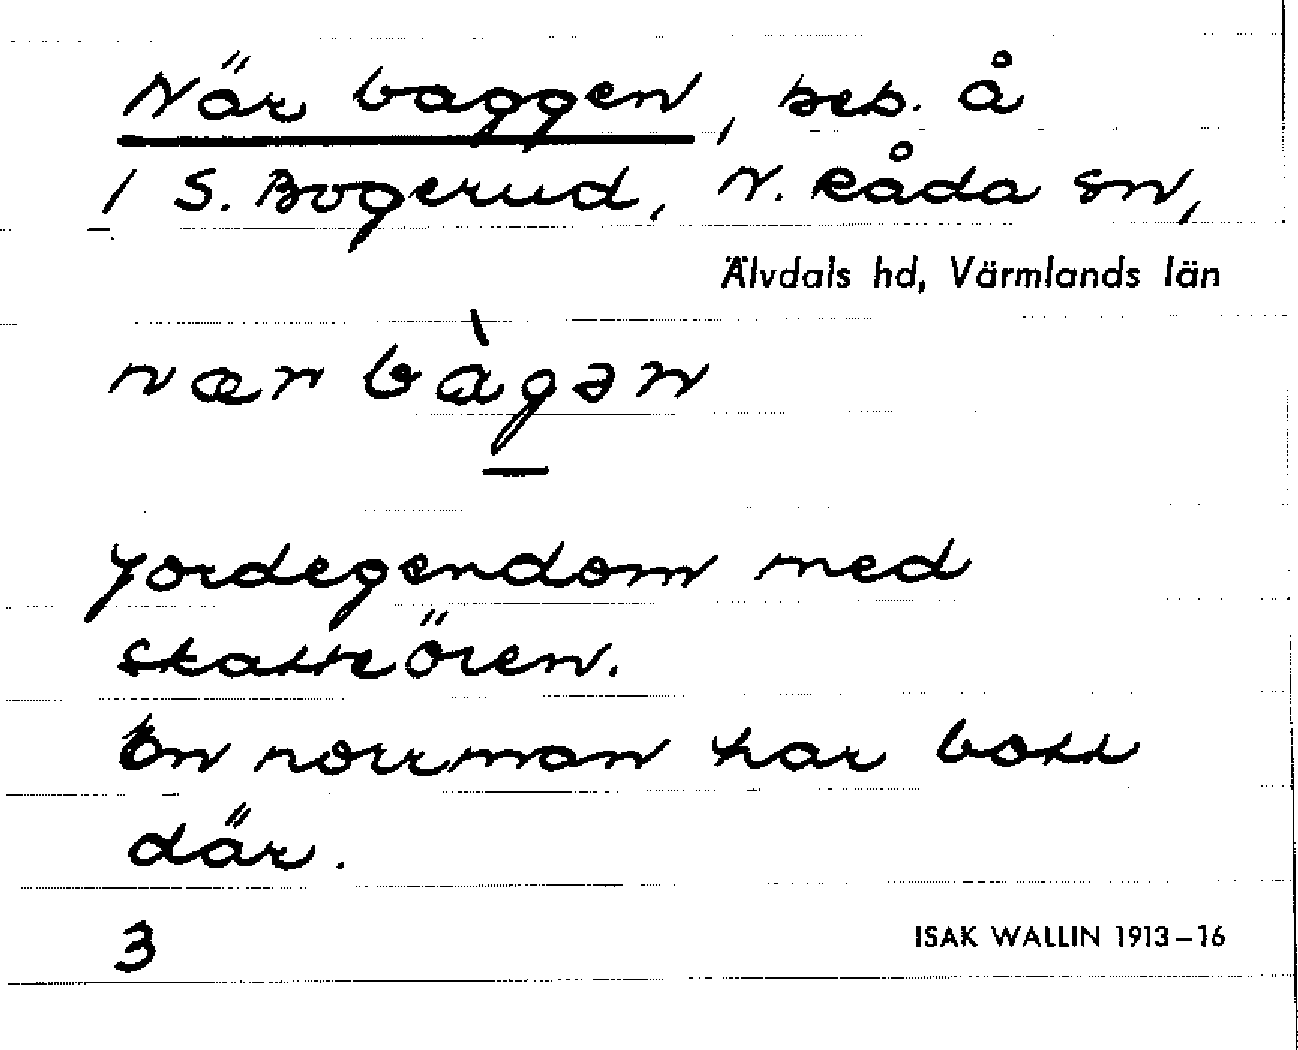 När baggen, beb. å
/ S. Bogerud, N. Råda sn,
Älvdals hd, Värmlands län
nær bàgən
jordegendom med
skatteören.
En norrman har bott
där.
3
ISAK WALLIN 1913–16